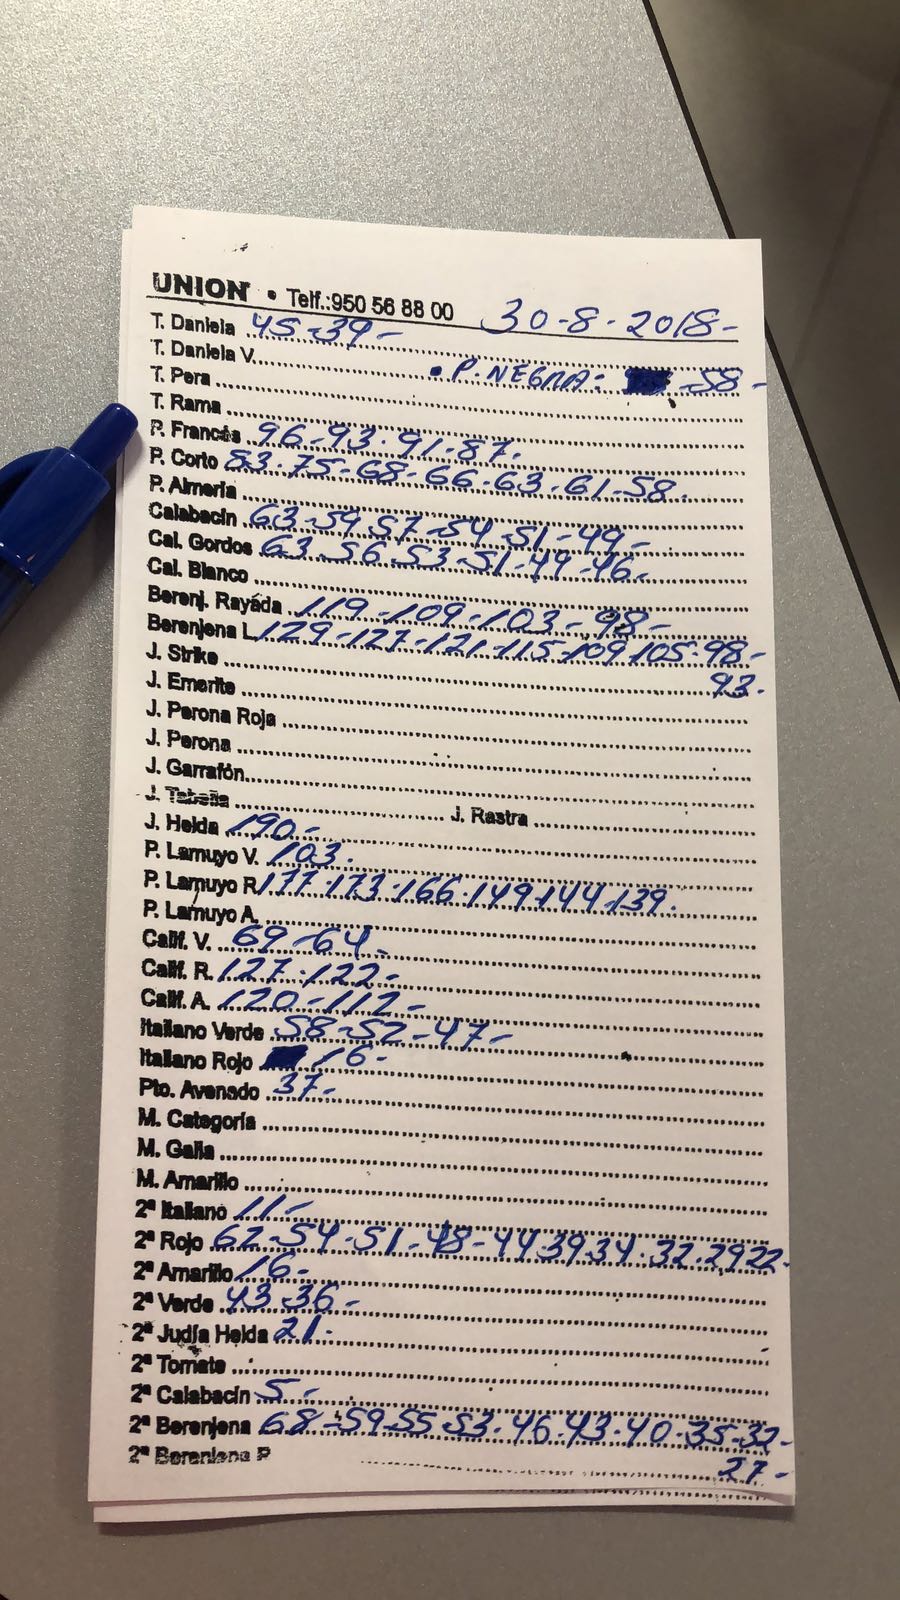 UNION • Telf.:950 56 88 00 30-8-2018-
T. Daniela 45-39-
T. Daniela V. • P. NEGRA: 58-
T. Pera
T. Rama
P. Francés 96-93-91-87.
P. Corto 83-75-68-66-63-61-58.
P. Almería
Calabacín 63-59-57-54-51-49-
Cal. Gordos 63-56-53-51-49-46-
Cal. Blanco
Berenj. Rayada 119-109-103-98-
Berenjena L. 129-127-121-115-109-105-98-
93-
J. Strike
J. Emerite
J. Perona Roja
J. Perona
J. Garrafón
J. Tabella J. Rastra
J. Helda 190-
P. Lamuyo V. 103.
P. Lamuyo R 177-173-166-149-144-139.
P. Lamuyo A.
Calif. V. 69-64-
Calif. R. 127-122-
Calif. A. 120-112-
Italiano Verde 58-52-47-
Italiano Rojo 16-
Pto. Avenado 37-
M. Categoría
M. Galia
M. Amarillo
2ª Italiano 11-
2ª Rojo 62-54-51-48-44-39-34-32-29-22-
2ª Amarillo 16-
2ª Verde 43-36-
2ª Judía Helda 21-
2ª Tomate
2ª Calabacín 5-
2ª Berenjena 68-59-55-53-46-43-40-35-32-
27-
2ª Berenjena P